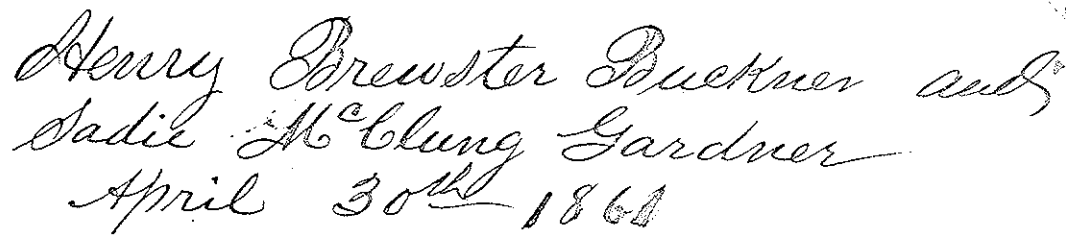 Henry Brewster Buckner and
Sadie McClung Gardner
April 30th 1861